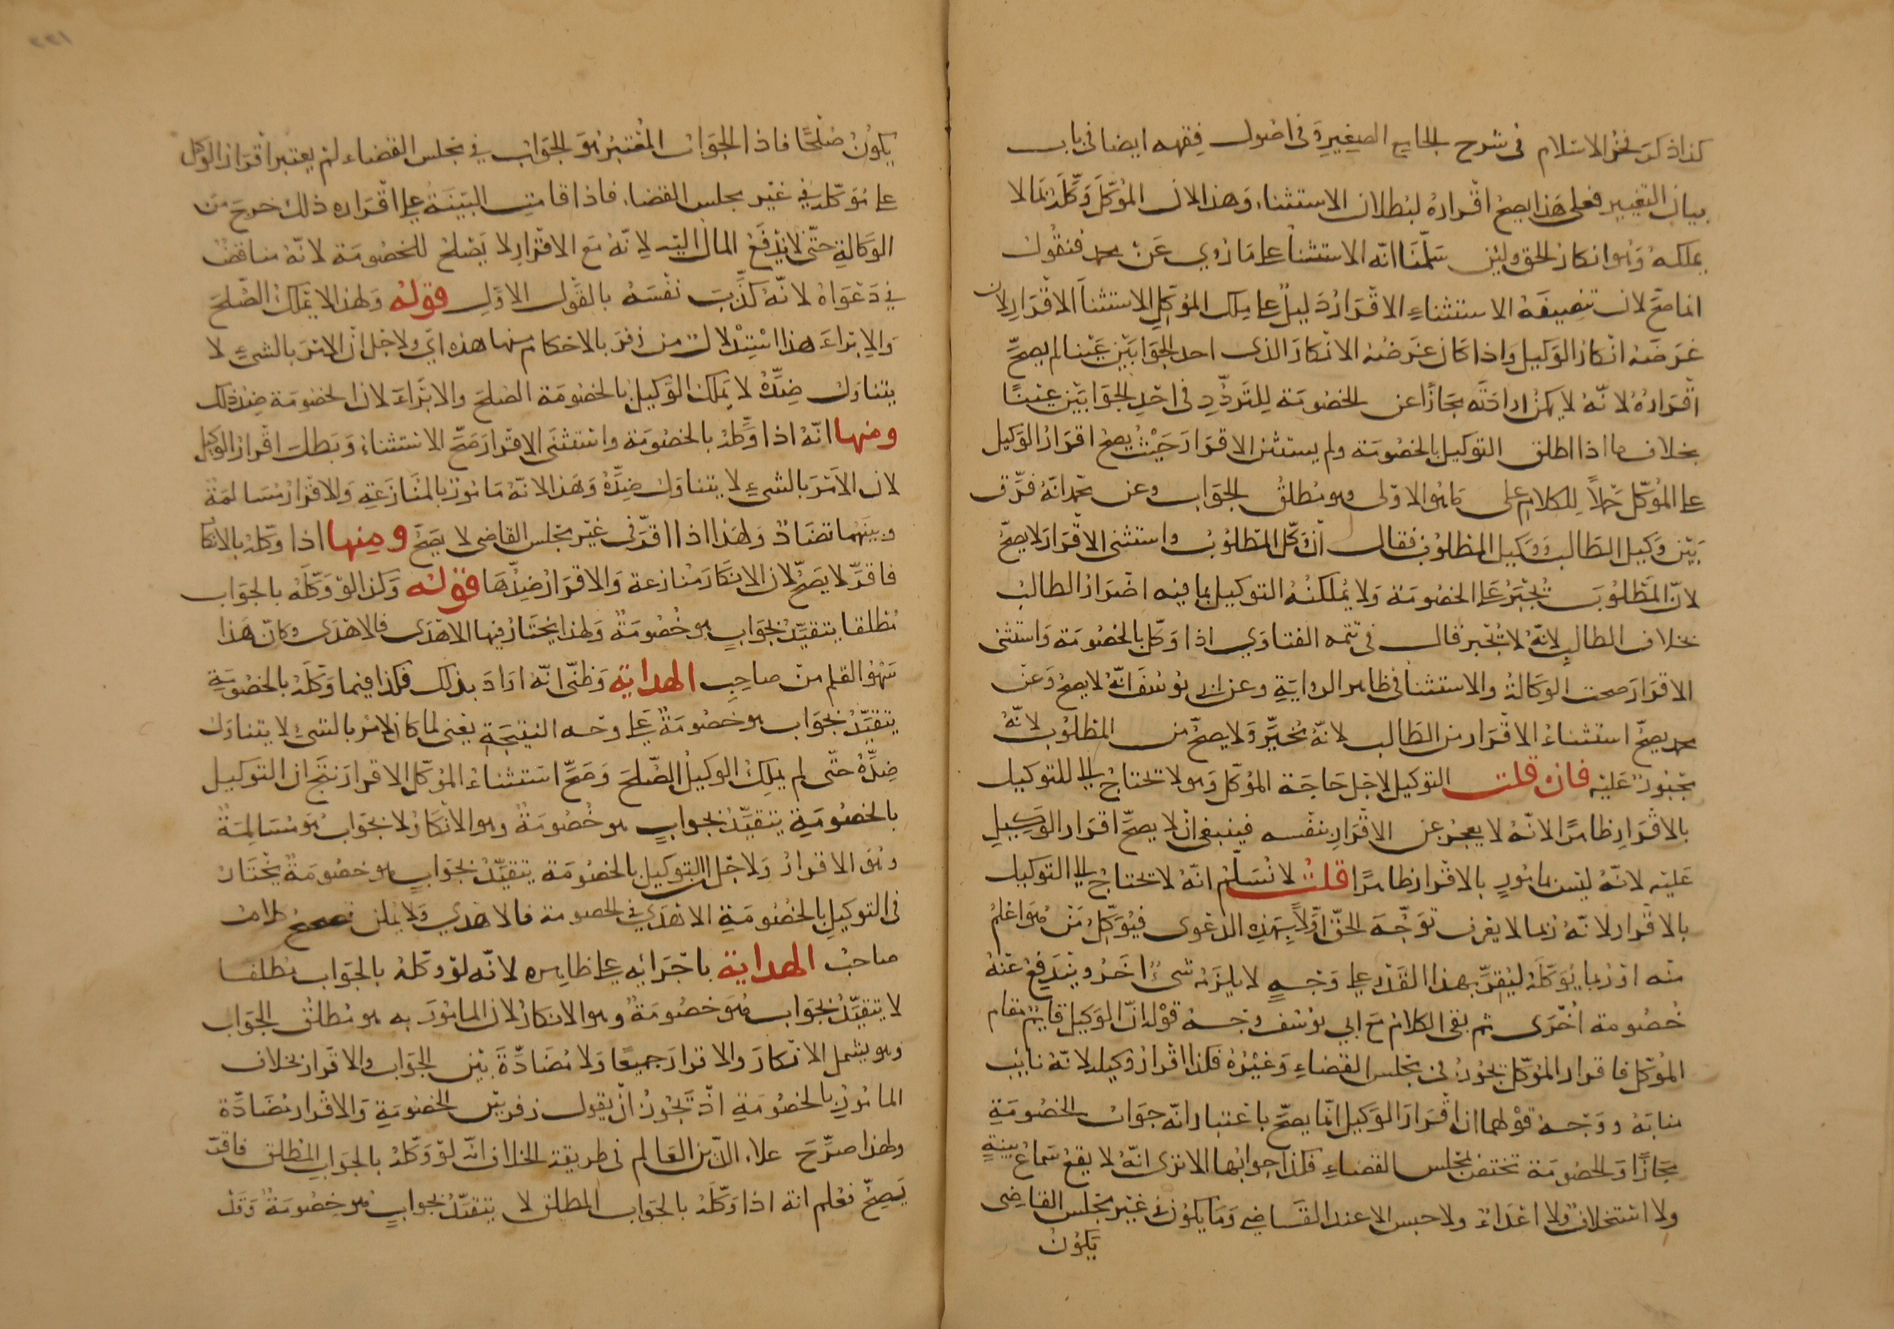 كذا ذكر فخر الاسلام فى شرح الجامع الصغير وفى اصول فقهه ايضا فى باب
بيان التغيير فعلى هذا يصح اقراره لبطلان الاستثناء وهذا لان الموكل وكله بما لا
يملكه وهو انكار الحق ولئن سلمنا انه الاستثناء على ما روي عن محمد فنقول
انما صح لان تنصيصه الاستثناء الاقرار دليل على ملك الموكل الاستثنا الاقرار لان
غرضه انكار الوكيل واذا كان غرضه الانكار الذى احد الجوابين عينا لم يصح
اقراره لانه لا يمكن ارادته مجازا عن الخصومة للتردد فى احد الجوابين عينا
بخلاف ما اذا اطلق التوكيل بالخصومة ولم يستثن الاقرار حيث يصح اقرار الوكيل
على الموكل حملا للكلام على ما هو الاولى وهو مطلق الجواب وعن محمد انه فرق
بين وكيل الطالب ووكيل المطلوب فقال ان وكل المطلوب واستثنى الاقرار لا يصح
لان المطلوب يجبر على الخصومة ولا يملكنه التوكيل بما فيه اضرار الطالب
بخلاف الطالب لانه لا يجبر قال فى تتمه الفتاوي اذا وكل بالخصومة واستثنى
الاقرار صحت الوكالة والاستثنا فى ظاهر الرواية وعن ابى يوسف انه لا يصح وعن
محمد يصح استثناء الاقرار من الطالب لانه مخير ولا يصح من المطلوب لانه
مجبور عليه فان قلت التوكيل لاجل حاجة الموكل وهو لا تحتاج الى للتوكيل
بالاقرار ظاهرا لانه لا يعجز عن الاقرار بنفسه فينبغى ان لا يصح اقرار الوكيل
عليه لانه ليس بمامور بالاقرار ظاهرا قلت لا نسلم انه لا تحتاج الى التوكيل
بالاقرار لانه ربما لا يعرف توجه الحق اولا بهذه الدعوى فيوكل من هو اعلم
منه او ربما يوكله ليقر بهذا القدر على وجه لا يلزمه شئ اخر ويندفع عنه
خصومة اخرى ثم بقى الكلام مع ابي يوسف وجه قوله ان الوكيل قايم مقام
الموكل فاقرار الموكل يجوز فى مجلس القضاء وغيره فكذا اقرار وكيله لانه نايب
منابه ووجه قولهما ان اقرار الوكيل انما يصح باعتبار انه جواب الخصومة
مجازا والخصومة تختص بمجلس القضاء فكذا جوابها الا ترى انه لا يقع سماع بينة
ولا استحلاف ولا اعداء ولا حبس الا عند القاضي وما يكون فى غير مجلس القاضى
يكون
يكون صلحا فاذا الجواب المعتبر هو الجواب في مجلس القضاء لم يعتبر اقرار الوكيل
على موكله في غير مجلس القضا فاذا قامت البينة على اقراره ذلك خرج من
الوكالة حتى لا يدفع المال اليه لانه مع الاقرار لا يصلح للخصومة لانه مناقض
في دعواه لانه كذب نفسه بالقول الاول قوله ولهذا لا يملك الصلح
والابراء هذا استدلال من زفر بالاحكام منها هذه اي ولاجل ان الامر بالشيء لا
يتناول ضده لا يملك الوكيل بالخصومة الصلح والابراء لان الخصومة ضد ذلك
ومنها انه اذا وكله بالخصومة واستثنى الاقرار صح الاستثناء وبطل اقرار الوكيل
لان الامر بالشيء لا يتناول ضده وهذا لانه مامور بالمنازعة والاقرار مسالمة
وبينهما تضاد ولهذا اذا اقر فى غير مجلس القاضى لا يصح ومنها اذا وكله بالانكار
فاقر لا يصح لان الانكار منازعة والاقرار ضدها قوله وكذا لو وكله بالجواب
مطلقا يتقيد بجواب هو خصومة ولهذا يختار فيها الاهدى فالاهدى وكان هذا
سهو القلم من صاحب الهداية وظنى انه اراد بذلك فكذا فيما وكله بالخصومة
يتقيد بجواب هو خصومة على وجه النتيجة يعنى لما كان الامر بالشئ لا يتناول
ضده حتى لم يملك الوكيل الصلح وصح استثناء الموكل الاقرار نتج ان التوكيل
بالخصومة يتقيد بجواب هو خصومة وهو الانكار لا بجواب هو مسالمة
وهو الاقرار ولاجل ان التوكيل بالخصومة يتقيد بجواب هو خصومة يختار
فى التوكيل بالخصومة الاهدي في الخصومة فالاهدي ولا يمكن تصحيح كلام
صاحب الهداية باجرائه على ظاهره لانه لو وكله بالجواب مطلقا
لا يتقيد بجواب هو خصومة وهو الانكار لان المامور به هو مطلق الجواب
وهو يشمل الانكار والاقرار جميعا ولا مضادة بين الجواب والاقرار بخلاف
المامور بالخصومة اذ يجوز ان يقول زفر بين الخصومة والاقرار مضادة
ولهذا صرح علاء الدين العالم فى طريقة الخلاف انه لو وكله بالجواب المطلق فاقر
يصح فعلم انه اذا وكله بالجواب المطلق لا يتقيد بجواب هو خصومة وقد